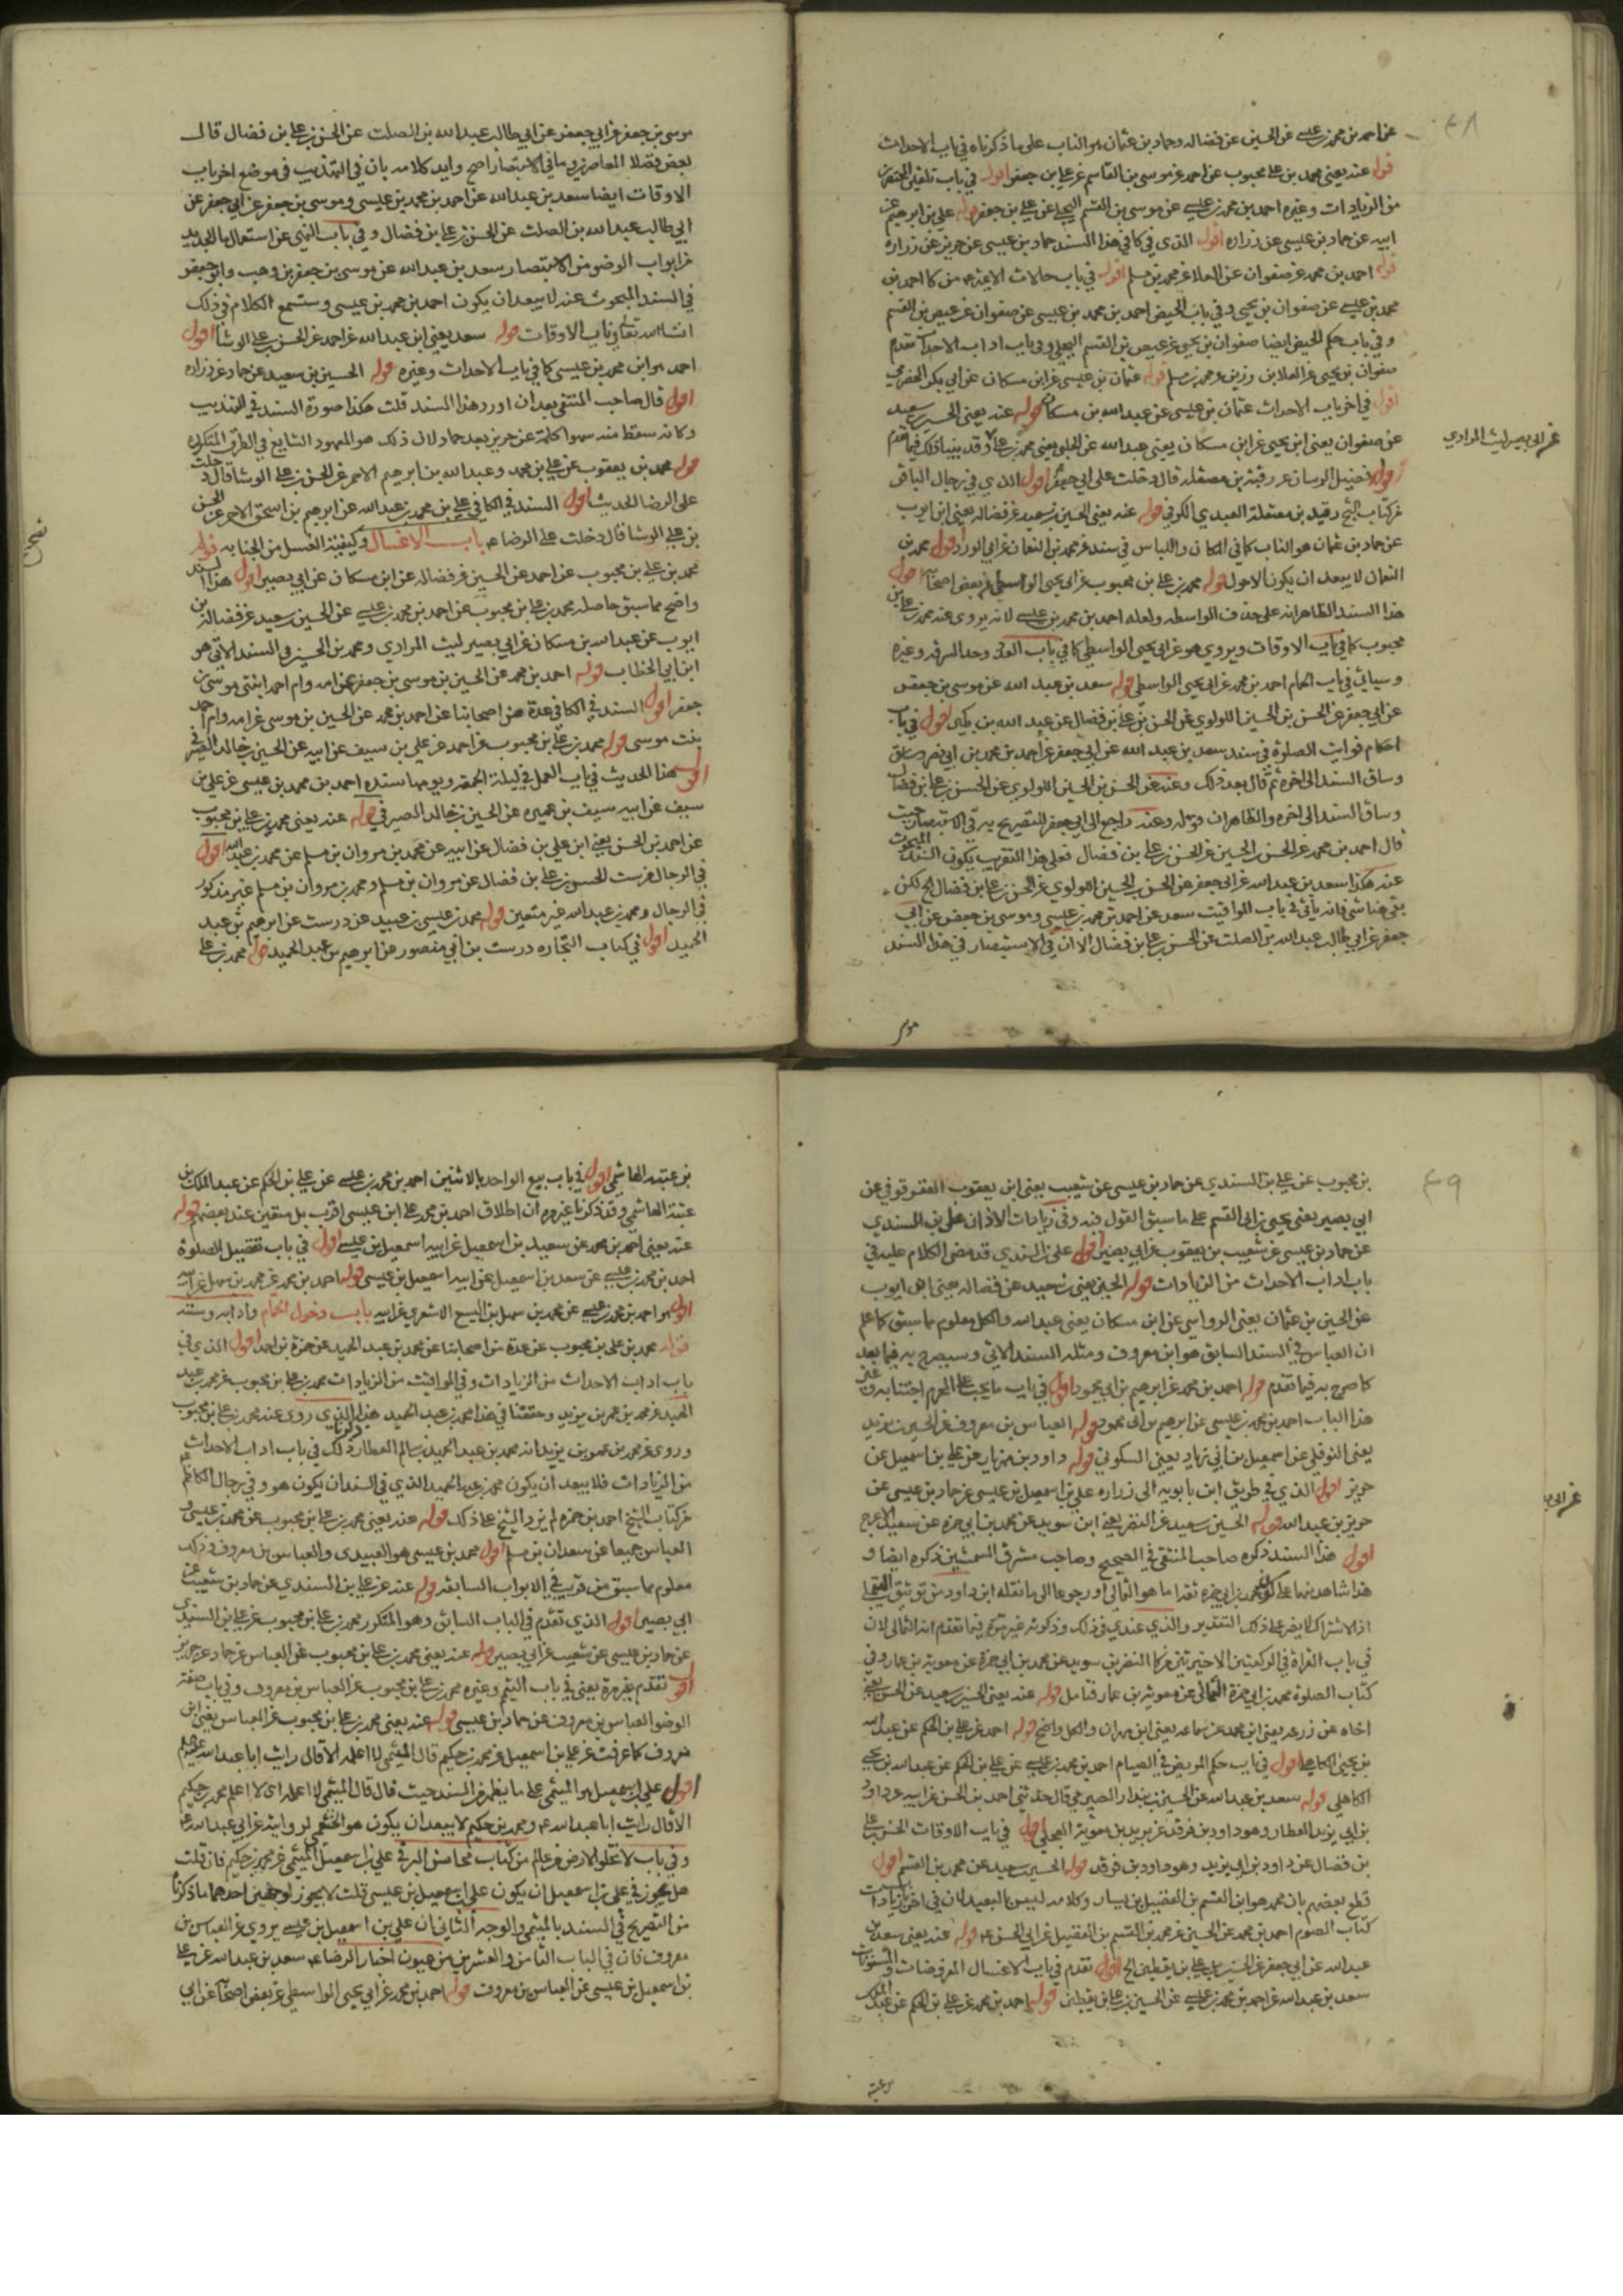 ٤٨
عن احمد بن محمد بن عيسى عن الحسين عن فضاله وحماد بن عثمان هو الناب على ما ذكرناه في باب الاحداث
قوله عنه يعني محمد بن علي محبوب عن احمد عن موسى بن القاسم عن علي بن جعفر اقول في باب تلقين المحتضرين
من الزيادات وغيره احمد بن محمد بن عيسى عن موسى بن القسم البجلي عن علي بن جعفر قوله علي بن ابرهيم عن
ابيه عن حماد بن عيسى عن زراره اقول الذي في كا في هذا السند حماد بن عيسى عن حريز عن زراره
قوله احمد بن محمد عن صفوان عن العلا عن محمد بن مسلم اقول في باب حالات الايمه من كا احمد بن
محمد بن عيسى عن صفوان بن يحيى وفي باب الحيض احمد بن محمد بن عيسى عن صفوان عن عيص بن القسم
وفي باب حكم الحيض ايضا صفوان بن يحيى عن عيص بن القسم البجلي وفي باب اداب الاحداث تقدم
صفوان بن يحيى عن العلا بن رزين عن محمد بن مسلم قوله عثمان بن عيسى عن ابن مسكان عن ابي بكر الحضرمي
اقول في اخر باب الاحداث عثمان بن عيسى عن عبدالله بن مسكان قوله عنه يعني الحسين بن سعيد
عن صفوان يعني ابن يحيى عن ابن مسكان يعني عبدالله عن الحلبي يعني محمد بن علي وقد بينا ذلك فيما تقدم
عن ابي بصير ليث المرادي
قوله فضيل الرسان عن رقبة بن مصقله قال دخلت على ابي جعفر اقول الذي في رجال الباقر
من كتاب الشيخ رقيد بن مصقلة العبدي الكوفي قوله عنه يعني الحسين بن سعيد عن فضاله يعني ابن ايوب
عن حماد بن عثمان هو الناب كما في المكان واللباس في سند عن محمد بن النعمان عن ابي الورد اقول محمد بن
النعمان لا يبعد ان يكون الاحول قوله محمد بن علي بن محبوب عن ابي يحيى الواسطي عن بعض اصحابه اقول
هذا السند الظاهر انه على حذف الواسطه ولعله احمد بن محمد بن عيسى لانه يروى عنه محمد بن علي بن
محبوب كما في باب الاوقات ويروي هو عن ابي يحيى الواسطي كما في باب وحد السرقه وغيره
وسيأتي في باب الحمام احمد بن محمد عن ابي يحيى الواسطي قوله سعد بن عبد الله عن موسى بن جعفر
عن ابي جعفر عن الحسن بن الحسين اللولوي عن الحسن بن علي بن فضال عن عبد الله بن بكير اقول في باب
احكام فوايت الصلوة في سند سعد بن عبد الله عن ابي جعفر عن احمد بن محمد بن ابي نصر وساق
وساق السند الى اخره ثم قال بعد ذلك وعنه عن الحسن بن الحسين اللولوي عن الحسن بن علي بن فضال
وساق السند الى اخره والظاهر ان قوله وعنه راجع الى ابي جعفر للتصريح به في الاستبصار حيث
قال احمد بن محمد عن الحسن بن الحسين عن الحسن بن علي بن فضال فعلى هذا التقريب يكون السند المبحوث
عنه هكذا سعد بن عبد الله عن ابي جعفر عن الحسن بن الحسين اللولوي عن الحسن بن علي بن فضال الخ لكن
بقي هنا شي فانه يأتي في باب المواقيت سعد عن احمد بن محمد بن عيسى وموسى بن جعفر عن ابي
جعفر عن ابي طالب عبد الله بن الصلت عن الحسن بن علي بن فضال الا ان في الاستبصار في هذا السند
موسى
موسى بن جعفر عن ابي جعفر عن ابي طالب عبد الله بن الصلت عن الحسن بن علي بن فضال قال
بعض فضلا المعاصرين وما في الاستبصار اصح وايد كلامه بان في التهذيب في موضع اخر باب
الاوقات ايضا سعد بن عبد الله عن احمد بن محمد بن عيسى وموسى بن جعفر عن ابي جعفر عن
ابي طالب عبد الله بن الصلت عن الحسن بن علي بن فضال وفي باب النهي عن استعمال الما الجديد
من ابواب الوضو من الاستبصار سعد بن عبد الله عن موسى بن جعفر بن وهب وابو جعفر
في السند المبحوث عنه لا يبعد ان يكون احمد بن محمد بن عيسى وستسمع الكلام في ذلك
انشا الله تعالى في باب الاوقات قوله سعد يعني ابن عبد الله عن احمد عن الحسن بن علي الوشا اقول
احمد هو ابن محمد بن عيسى كما في باب الاحداث وغيره قوله الحسين بن سعيد عن حماد عن زراره
اقول قال صاحب المنتقى بعد ان اورد هذا السند قلت هكذا صورة السند في التهذيب
وكانه سقط منه سهوا كلمة عن حريز بعد حماد لان ذلك هو المعهود الشايع في الطرق المتكرره
قوله محمد بن يعقوب عن علي بن محمد وعبد الله بن ابرهيم الاحمر عن الحسن بن علي الوشا قال دخلت
على الرضا الحديث اقول السند في الكافي علي بن محمد بن عبد الله عن ابرهيم بن اسحق الاحمر عن الحسن
بن علي الوشا قال دخلت على الرضا ع باب الاغسال وكيفية الغسل من الجنابه قوله
محمد بن علي بن محبوب عن احمد عن الحسين عن فضاله عن ابن مسكان عن ابي بصير اقول هذا السند
واضح مما سبق حاصله محمد بن علي بن محبوب عن احمد بن محمد بن عيسى عن الحسين بن سعيد عن فضاله بن
ايوب عن عبد الله بن مسكان عن ابي بصير ليث المرادي ومحمد بن الحسين في السند الاتي هو
ابن ابي الخطاب قوله احمد بن محمد عن الحسين بن موسى بن جعفر عن امه وام احمد ابنتي موسى بن
جعفر اقول السند في الكافي عدة من اصحابنا عن احمد بن محمد عن الحسين بن موسى عن امه وام احمد
بنت موسى قوله محمد بن علي بن محبوب عن احمد عن علي بن سيف عن ابيه عن الحسين بن خالد الصيرفي
اقول هذا الحديث في باب العمل في ليلة الجمعه ويومها سنده احمد بن محمد بن عيسى عن علي بن
سيف عن ابيه سيف بن عميره عن الحسين بن خالد الصيرفي قوله عنه يعني محمد بن علي بن محبوب
عن احمد بن الحسن يعني ابن علي بن فضال عن ابيه عن محمد بن مروان بن مسلم عن محمد بن عبد الله اقول
في الرجال الحسن بن علي بن فضال عن مروان بن مسلم ومحمد بن مروان بن مسلم غير مذكور
في الرجال ومحمد بن عبد الله غير متعين قوله محمد بن عيسى بن عبيد عن درست عن ابرهيم بن عبد
الحميد اقول في كتاب التجاره درست بن ابي منصور عن ابرهيم بن عبد الحميد قوله محمد بن علي
٤٩
بن محبوب عن علي بن السندي عن حماد بن عيسى عن شعيب يعني ابن يعقوب العقرقوفي عن
ابي بصير يعني يحيى بن ابي القسم على ما سبق القول فيه وفي زيادات الاذان علي بن السندي
عن حماد بن عيسى عن شعيب بن يعقوب عن ابي بصير اقول علي بن السندي قد مضى الكلام عليه في
باب اداب الاحداث من الزيادات قوله الحسين يعني بن سعيد عن فضاله يعني ابن ايوب
عن الحسين بن عثمان يعني الرواسي عن ابن مسكان يعني عبد الله والكل معلوم مما سبق كما علم
ان العباس في السند السابق هو ابن معروف ومثله السند الاتي وسيصرح به فيما بعد
كما صرح به فيما تقدم قوله احمد بن محمد عن ابرهيم بن ابي محمود اقول في باب ما يجب على المحرم اجتنابه
هذا الباب احمد بن محمد بن عيسى عن ابرهيم بن ابي محمود قوله العباس بن معروف عن الحسين بن يزيد
يعني النوفلي عن اسمعيل بن ابي زياد يعني السكوني قوله داود بن مهزيار عن علي بن اسمعيل عن
حريز اقول الذي في طريق ابن بابويه الى زراره علي بن اسمعيل بن عيسى عن حماد بن عيسى عن
حريز بن عبد الله قوله الحسين بن سعيد عن النضر يعني ابن سويد عن محمد بن ابي حمزه عن سعيد الاعرج
اقول هذا السند ذكره صاحب المنتقى في الصحيح وصاحب مشرق الشمسين ذكره ايضا و
هذا شاهد منهما على كون محمد بن ابي حمزه ثقه اما هو الثمالي او رجوعا الى ما نقله ابن داود من توثيق التيملي
اذ الاشتراك لا يضر على ذلك التقدير والذي عندي في ذلك وذكرته غير مرة فيما تقدم انه الثمالي لان
في باب القراة في الركعتين الاخيرتين من كا النضر بن سويد عن محمد بن ابي حمزة عن معوية بن عمار وفي
كتاب الصلوة محمد بن ابي حمزة الثمالي عن معوية بن عمار فتامل قوله عنه يعني الحسين بن سعيد عن الحسن يعني
اخاه عن زرعه يعني ابن محمد عن سماعه يعني ابن مهران والكل واضح قوله احمد عن علي بن الحكم عن عبد الله
بن يحيى الكاهلي اقول في باب حكم المريض في الصيام احمد بن محمد بن عيسى عن علي بن الحكم عن عبد الله بن يحيى
الكاهلي قوله سعد بن عبد الله عن الحسين بن بندار الصيرفي قال حدثني احمد بن الحسن عن ابيه عن داود
بن ابي يزيد العطار وهو داود بن فرقد عن بريد بن معوية العجلي اقول في باب الاوقات الحسن بن علي
بن فضال عن داود بن ابي يزيد وهو داود بن فرقد قوله الحسين بن سعيد عن محمد بن القسم اقول
قطع بعضهم بان محمد هو ابن القسم بن الفضيل بن يسار وكلامه ليس بالبعيد لان في اخر زيادات
كتاب الصوم احمد بن محمد عن الحسين عن محمد بن القسم بن الفضيل عن ابي الحسن ع قوله عنه يعني سعد بن
عبد الله عن ابي جعفر عن الحسين بن علي بن يقطين الخ اقول تقدم في باب الاغسال المفروضات والمسنونات
سعد بن عبد الله عن احمد بن محمد بن عيسى عن الحسين بن علي بن يقطين قوله احمد بن محمد عن علي بن الحكم عن عبد الملك
بن عتبه
بن عتبه الهاشمي اقول في باب بيع الواحد بالاثنين احمد بن محمد بن عيسى عن علي بن الحكم عن عبد الملك بن
عتبة الهاشمي وقد ذكرنا غير مره ان اطلاق احمد بن محمد على ابن عيسى اقرب بل متعين عند بعضهم قوله
عنه يعني احمد بن محمد عن سعيد بن اسمعيل عن ابيه اسمعيل بن عيسى اقول في باب تفصيل الصلوة
احمد بن محمد بن عيسى عن سعد بن اسمعيل عن ابيه اسمعيل بن عيسى قوله احمد بن محمد عن محمد بن سهل عن ابيه
اقول هو احمد بن محمد بن عيسى عن محمد بن سهل بن اليسع الاشعري عن ابيه باب دخول الحمام وادابه وسننه
قوله محمد بن علي بن محبوب عن عدة من اصحابنا عن محمد بن عبد الحميد عن حمزة بن احمد اقول الذي في
باب اداب الاحداث من الزيادات وفي المواقيت من الزيادات محمد بن علي بن محبوب عن محمد بن عبد
الحميد عن محمد بن عمر بن يزيد وحققنا في هذا محمد بن عبد الحميد هذا الذي روى عنه محمد بن علي بن محبوب
وروى عن محمد بن عمر بن يزيد انه محمد بن عبد الحميد بن سالم العطار ذكرنا ذلك في باب اداب الاحداث
من الزيادات فلا يبعد ان يكون محمد بن عبد الحميد الذي في السند ان يكون هو وفي رجال الكاظم
من كتاب الشيخ احمد بن حمزه لم يزد الشيخ على ذلك قوله عنه يعني محمد بن علي بن محبوب عن محمد بن عيسى و
العباس جميعا عن سعدان بن مسلم اقول محمد بن عيسى هو العبيدي والعباس بن معروف وذلك
معلوم مما سبق من قريب في الابواب السابقه قوله عنه عن علي بن السندي عن حماد بن شعيب عن
ابي بصير اقول الذي تقدم في الباب السابق وهو المتكرر محمد بن علي بن محبوب عن علي بن السندي
عن حماد بن عيسى عن شعيب عن ابي بصير قوله عنه يعني محمد بن علي بن محبوب عن العباس عن حماد عن حريز
اقول تقدم غير مرة يعني في باب التيمم وغيره محمد بن علي بن محبوب عن العباس بن معروف وفي باب صفة
الوضو العباس بن معروف عن حماد بن عيسى قوله عنه يعني محمد بن علي بن محبوب عن العباس يعني ابن
معروف كما عرفت عن علي بن اسمعيل عن محمد بن حكيم قال الميثمي لا اعلمه الا قال رايت ابا عبد الله
اقول علي بن اسمعيل هو الميثمي على ما يظهر من السند حيث قال قال الميثمي لا اعلمه اي لا اعلم محمد بن حكيم
الا قال رايت ابا عبد الله ع ومحمد بن حكيم لا يبعد ان يكون هو الخثعمي لروايته عن ابي عبد الله ع
وفي باب لا تخلو الارض من عالم من كتاب محاسن البرقي علي بن اسمعيل الميثمي عن محمد بن حكيم فان قلت
هل يجوز في علي بن اسمعيل ان يكون علي بن اسمعيل بن عيسى قلت لا يجوز لوجهين احدهما ما ذكرنا
من التصريح في السند بالميثمي والوجه الثاني ان علي بن اسمعيل بن عيسى يروي عن العباس بن
معروف فان في الباب الثامن والعشرين من عيون اخبار الرضا ع سعد بن عبد الله عن علي
بن اسمعيل بن عيسى عن العباس بن معروف قوله احمد بن محمد عن ابي يحيى الواسطي عن بعض اصحابنا عن ابي